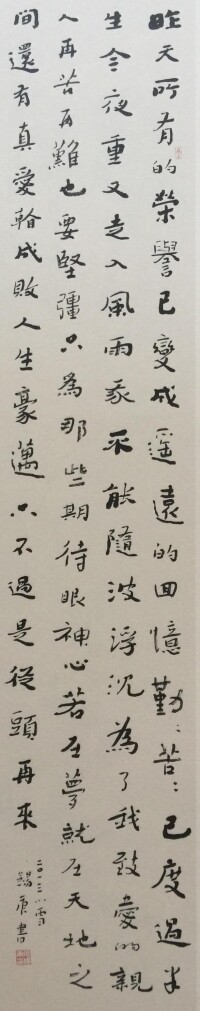 昨天所有的榮譽已變成遥遠的回憶勤〻苦〻已度過半
生今夜重又走入風雨我不能隨波浮沉為了我致愛的親
人再苦再難也要堅彊只為那些期待眼神心若在夢就在天地之
間還有真愛輸成敗人生豪邁只不過是從頭再來
二〇二三小雪
錫庚書